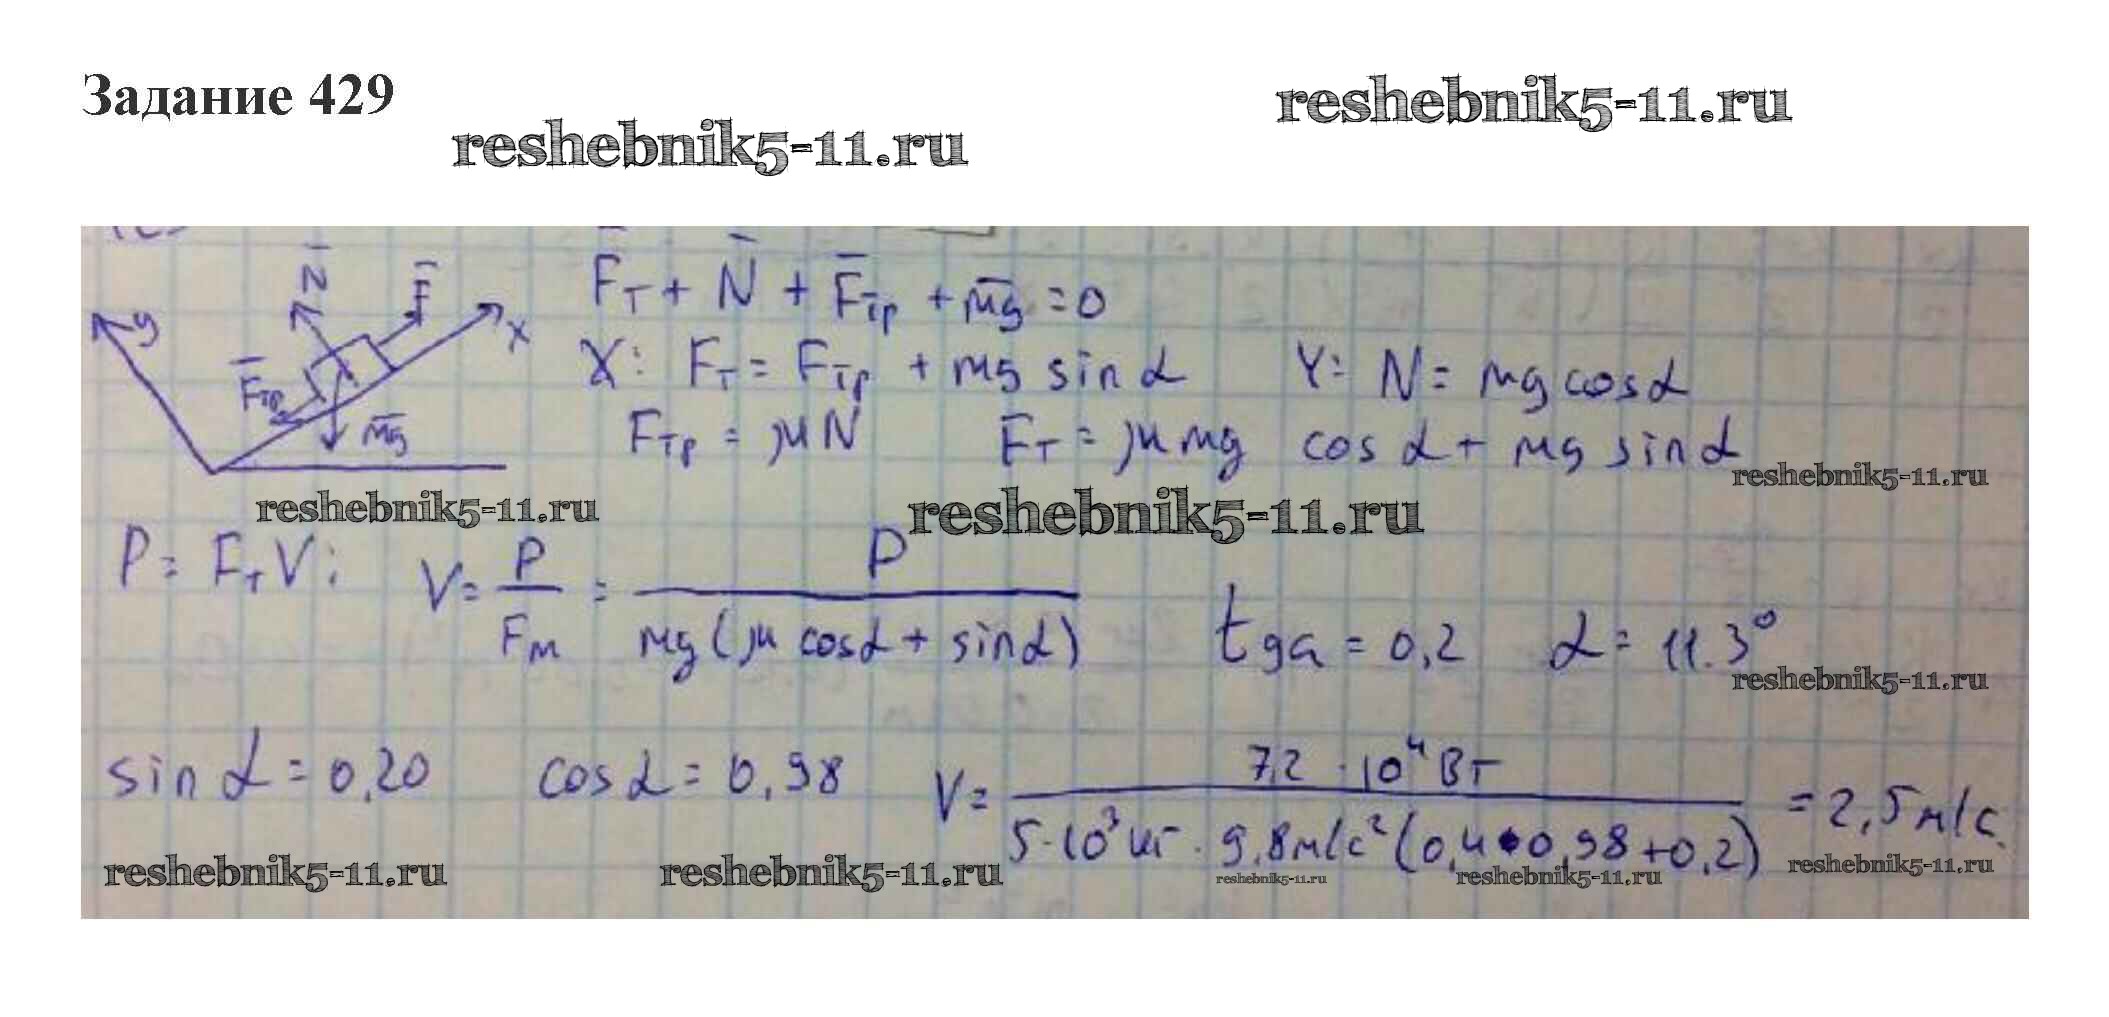 Задание 429
reshebnik5-11.ru
reshebnik5-11.ru
y N F x Fтр mg
Fт + N + Fтр + mg = 0
X: Fт = Fтр + mg sin α Y: N = mg cos α
Fтр = μN Fт = μmg cos α + mg sin α
reshebnik5-11.ru
reshebnik5-11.ru
reshebnik5-11.ru
P = FтV; V = P/Fт = P/(mg(μ cos α + sin α)) tg α = 0,2 α = 11.3°
reshebnik5-11.ru
sin α = 0,20 cos α = 0,98 V = 7,2 · 10⁴ Вт/(5·10³ кг · 9,8 м/с² (0,4·0,98 + 0,2)) = 2,5 м/с.
reshebnik5-11.ru
reshebnik5-11.ru
reshebnik5-11.ru
reshebnik5-11.ru
reshebnik5-11.ru